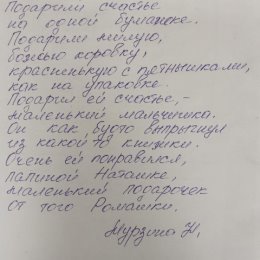 Подарили счастье
на одной бумажке.
Подарили милую,
божью коровку,
красненькую с пятнышками,
как на упаковке.
Подарил ей счастье,-
маленький мальчишка.
Он как будто выпрыгнул
из какой то книжки.
Очень ей понравился,
папиной Наташке,
маленький подарочек
от того Ромашки.
Мурзина Н,